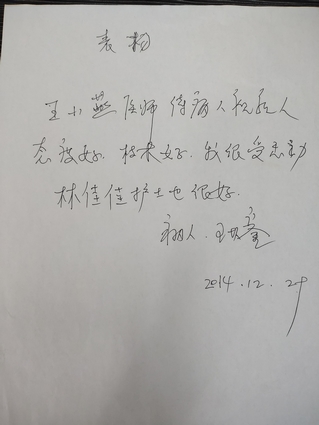 表扬
王小燕医师 待病人和亲人
态度好. 技术好. 我很受感动
林佳佳护士也很好.
病人. 王
2014.12.29